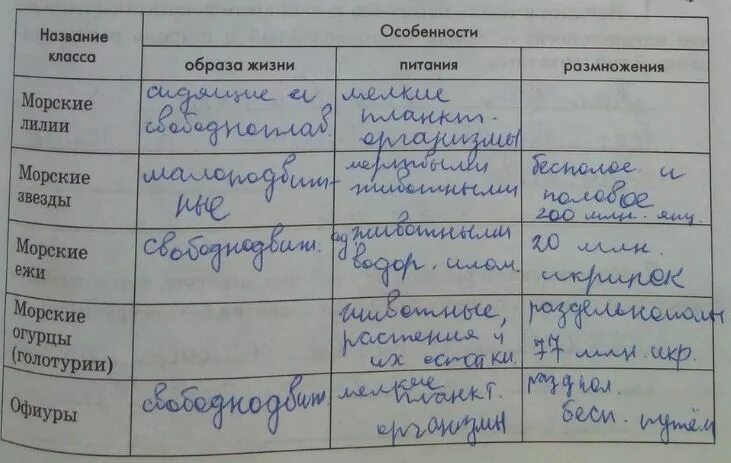 Название класса
Особенности
образа жизни
питания
размножения
Морские лилии
сидящие и
свободноплав.
мелкие
планкт.
организмы
Морские звезды
малоподвиж-
ные
мертвыми
животными
бесполое и
половое
200 млн. яиц.
Морские ежи
свободнодвиж.
животными
водор. илом
20 млн.
икринок
Морские огурцы (голотурии)
животные,
растения и
их остатки.
раздельнополы
77 млн. икр.
Офиуры
свободнодвиж.
мелкие
планкт.
организм
раздпол.
бесп. путём